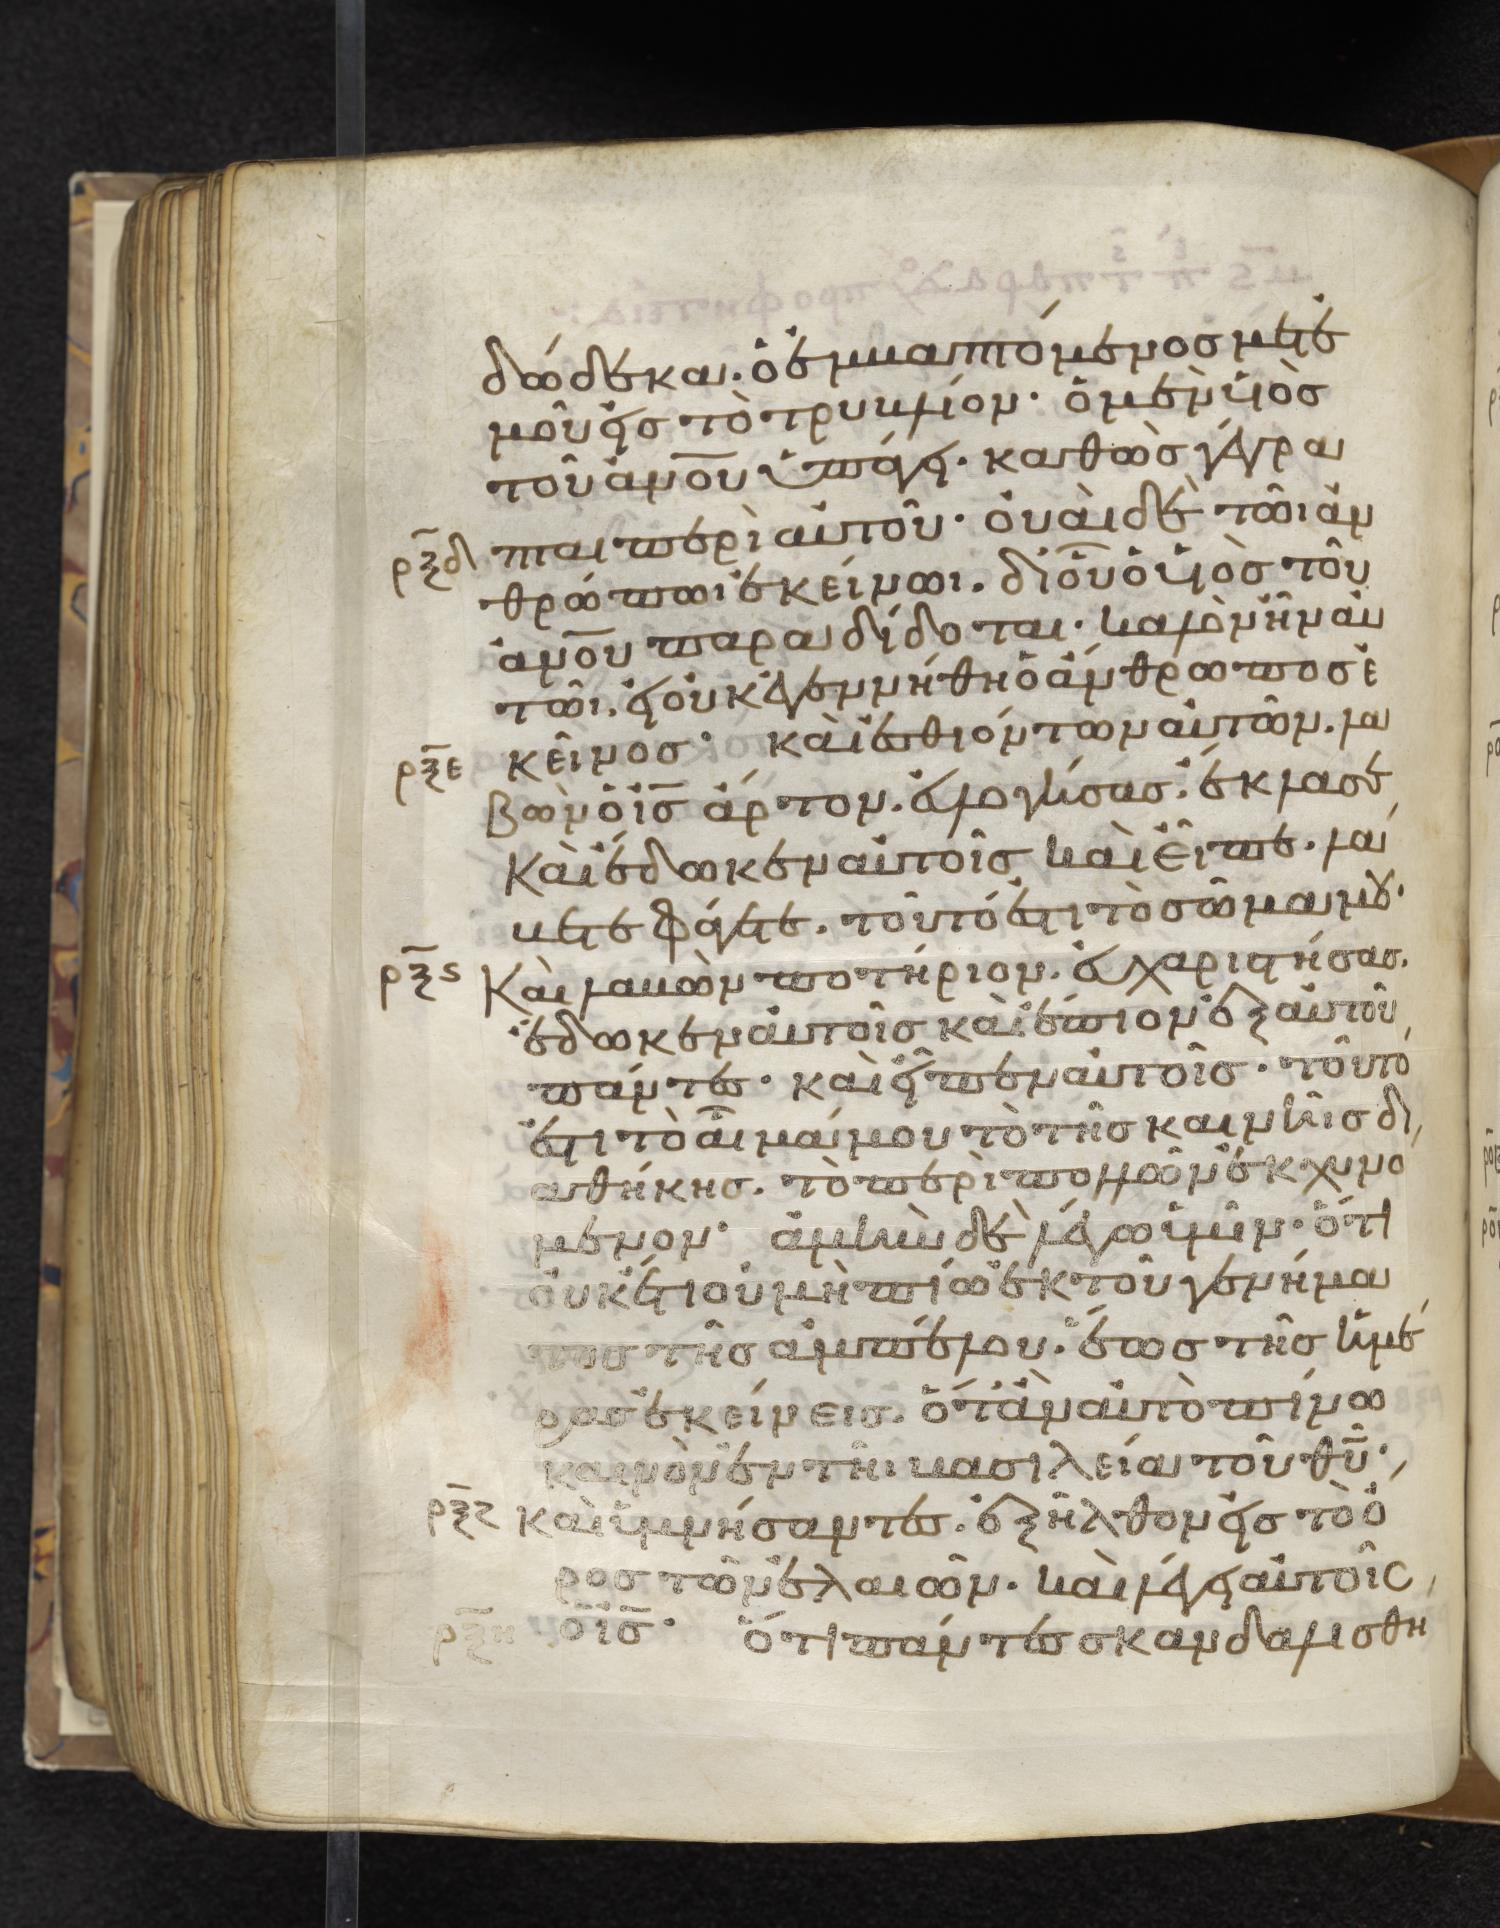 δώδεκα· ὁ ἐμβαπτόμενος μετ' ἐ
μοῦ εἰς τὸ τρυβλίον· ὁ μὲν υἱὸς
τοῦ ἀν̅ο̅υ̅ ὑπάγει· καθὼς γέγρα
ρ̅ξ̅δ πται περὶ αὐτοῦ· οὐαὶ δὲ τῶι ἀν
θρώπωι ἐκείνωι. δι' οὗ ὁ υἱὸς τοῦ
ἀν̅ο̅υ̅ παραδίδοται· καλὸν ἦν αὐ
τῶι. εἰ οὐκ ἐγεννήθη ὁ ἄνθρωπος ἐ
ρ̅ξ̅ε κεῖνος· καὶ ἐσθιόντων αὐτῶν. λα
βὼν ὁ ἰ̅σ̅ ἄρτον. εὐλογήσας. ἔκλασε,
καὶ ἔδωκεν αὐτοῖς καὶ εἶπε· λά
βετε φάγετε. τοῦτό ἐστι τὸ σῶμα μου·
ρ̅ξ̅ϛ Καὶ λαβὼν ποτήριον. εὐχαριστήσας.
ἔδωκεν αὐτοῖς καὶ ἔπιον ἐξ αὐτοῦ,
πάντες· καὶ εἶπεν αὐτοῖς· τοῦτό
ἐστι τὸ αἷμά μου τὸ τῆς καινῆς δι,
αθήκης. τὸ περὶ πολλῶν ἐκχυνό
μενον· ἀμὴν δὲ λέγω ὑμῖν· ὅτι
οὐκέτι οὐ μὴ πίω ἐκ τοῦ γενήμα
τος τῆς ἀμπέλου. ἕως τῆς ἡμέ
ρας ἐκείνης. ὅταν αὐτὸ πίνω
καινὸν ἐν τῆι βασιλεία τοῦ θ̅υ̅·,
ρ̅ξ̅ζ Καὶ ὑμνήσαντες. ἐξῆλθον εἰς τὸ ὄ
ρος τῶν ἐλαιῶν. καὶ λέγει αὐτοῖς,
ρ̅ξ̅η ὁ ἰ̅σ̅· ὅτι πάντες σκανδαλισθή